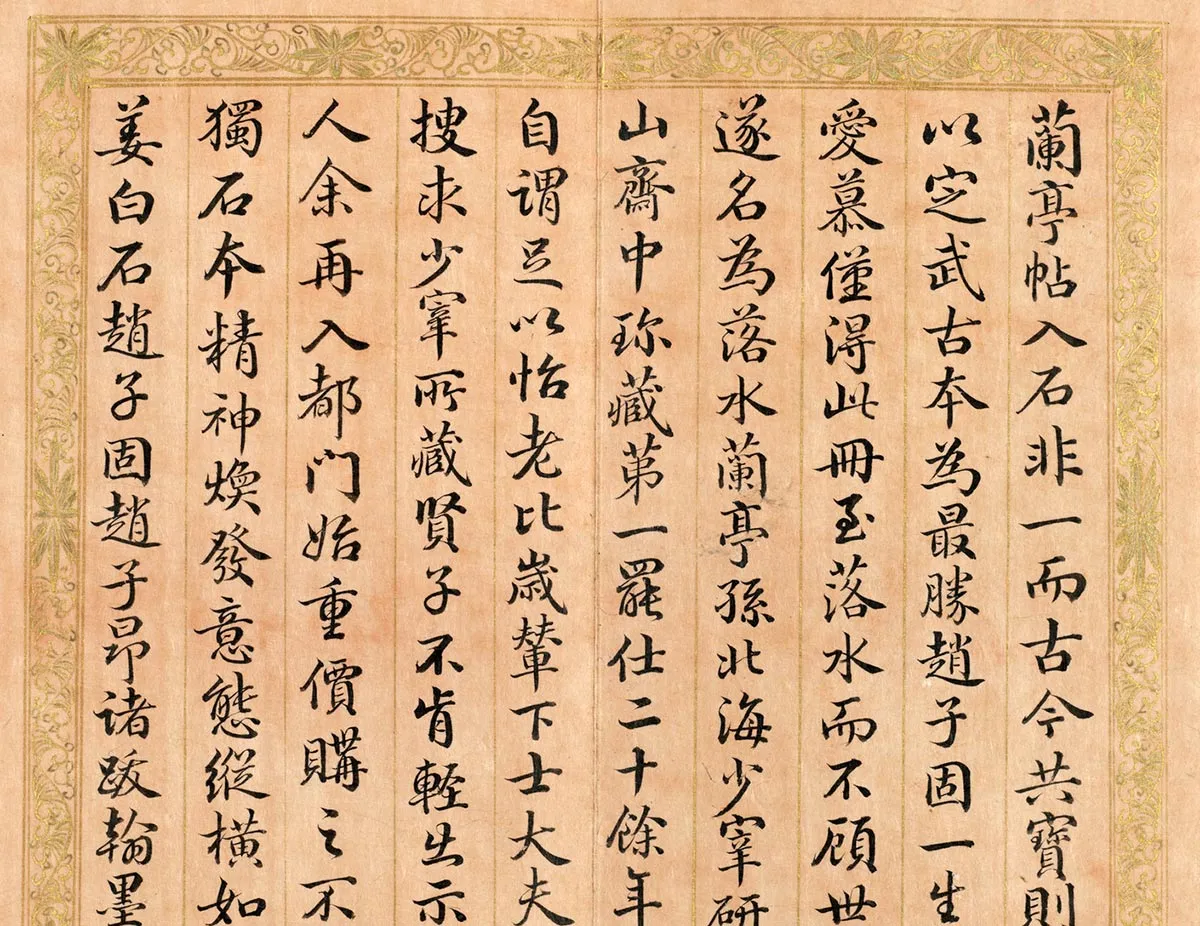 蘭亭帖入石非一而古今共寶則
以定武古本為最勝趙子固一生
愛慕僅得此冊至落水而不顧世
遂名為落水蘭亭孫北海少宰研
山齋中珎藏第一罷仕二十餘年
自謂足以怡老比歲輦下士大夫
搜求少宰所藏賢子不肯輕出示
人余再入都門始重價購之不
獨石本精神煥發意態縱橫如
姜白石趙子固趙子昂諸跋翰墨